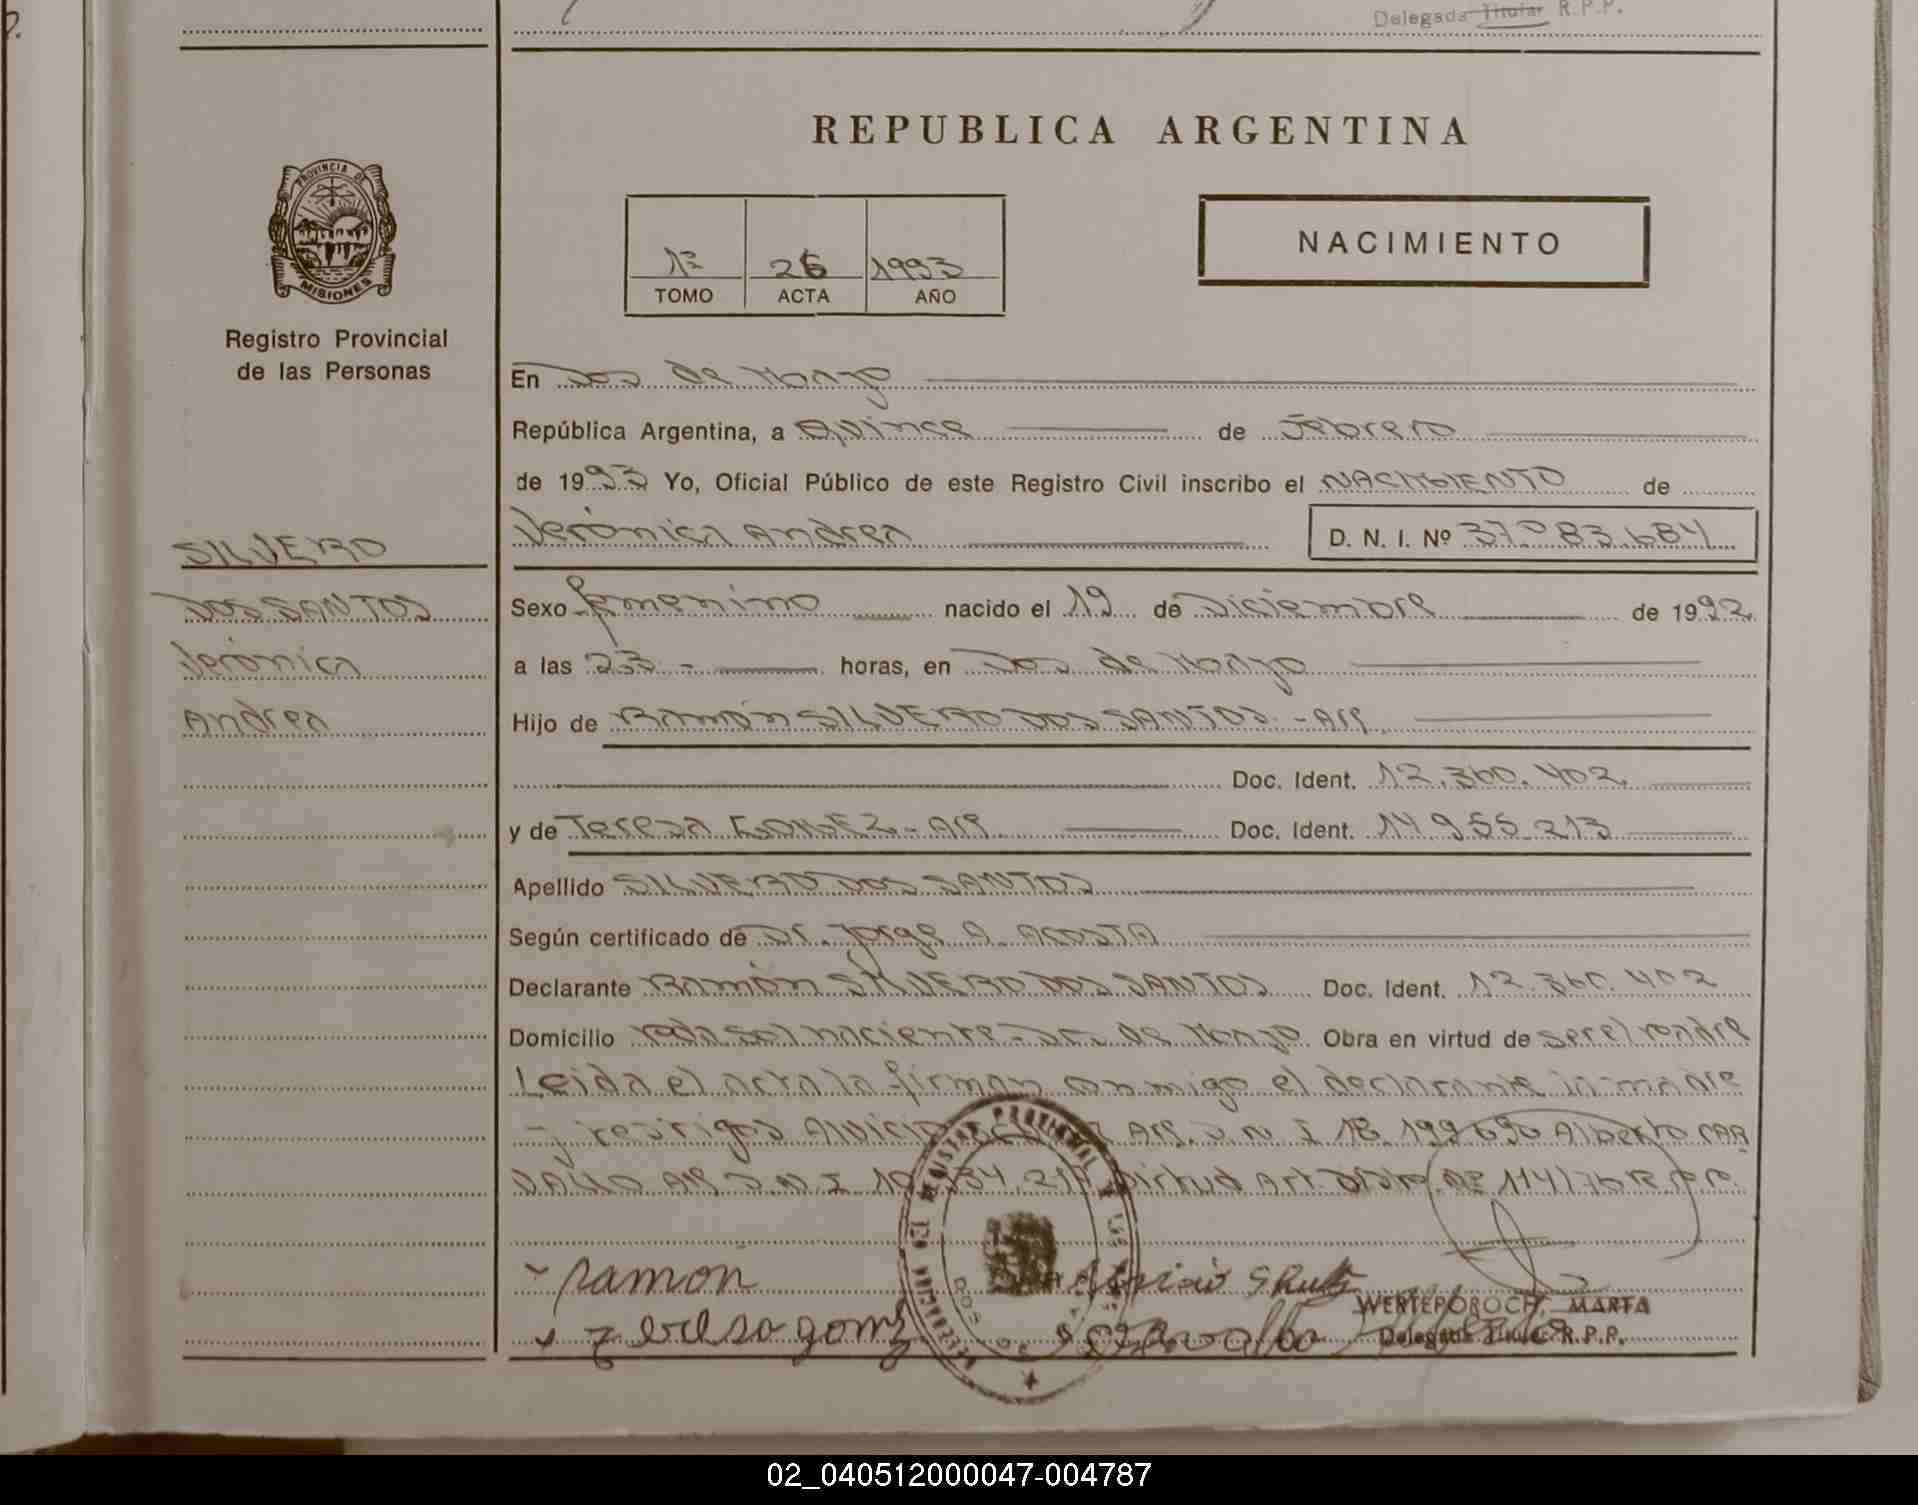 Delegada Titular R.P.P.
REPUBLICA ARGENTINA
PROVINCIA DE
MISIONES
Registro Provincial
de las Personas
1º 26 1993
TOMO ACTA AÑO
NACIMIENTO
En Dos de Mayo
República Argentina, a Quince de Febrero
de 1993 Yo, Oficial Público de este Registro Civil inscribo el NACIMIENTO de
Verónica Andrea D. N. I. Nº 37083684
SILVERO
DOS SANTOS
Verónica
Andrea
Sexo femenino nacido el 19 de Diciembre de 1992
a las 23 - horas, en Dos de Mayo
Hijo de RAMÓN SILVERO DOS SANTOS - Arg.
Doc. Ident. 12.360.402
y de Teresa GOMEZ - Arg. Doc. Ident. 14.955.213
Apellido SILVERO DOS SANTOS
Según certificado de Dr. Jorge A. ACOSTA
Declarante RAMÓN SILVERO DOS SANTOS Doc. Ident. 12.360.402
Domicilio Sol naciente - Dos de Mayo Obra en virtud de ser el padre
Leida el acta la firman conmigo el declarante la madre
y testigos Arg. D.N.I 18.199.690 Alberto CAR
VALLO Arg D.N.I virtud Art. Nº 114/76 R.P.P.
ramon
teresa gomez
WERTEPOROCH, MARTA
Delegada Titular R.P.P.
02_040512000047-004787